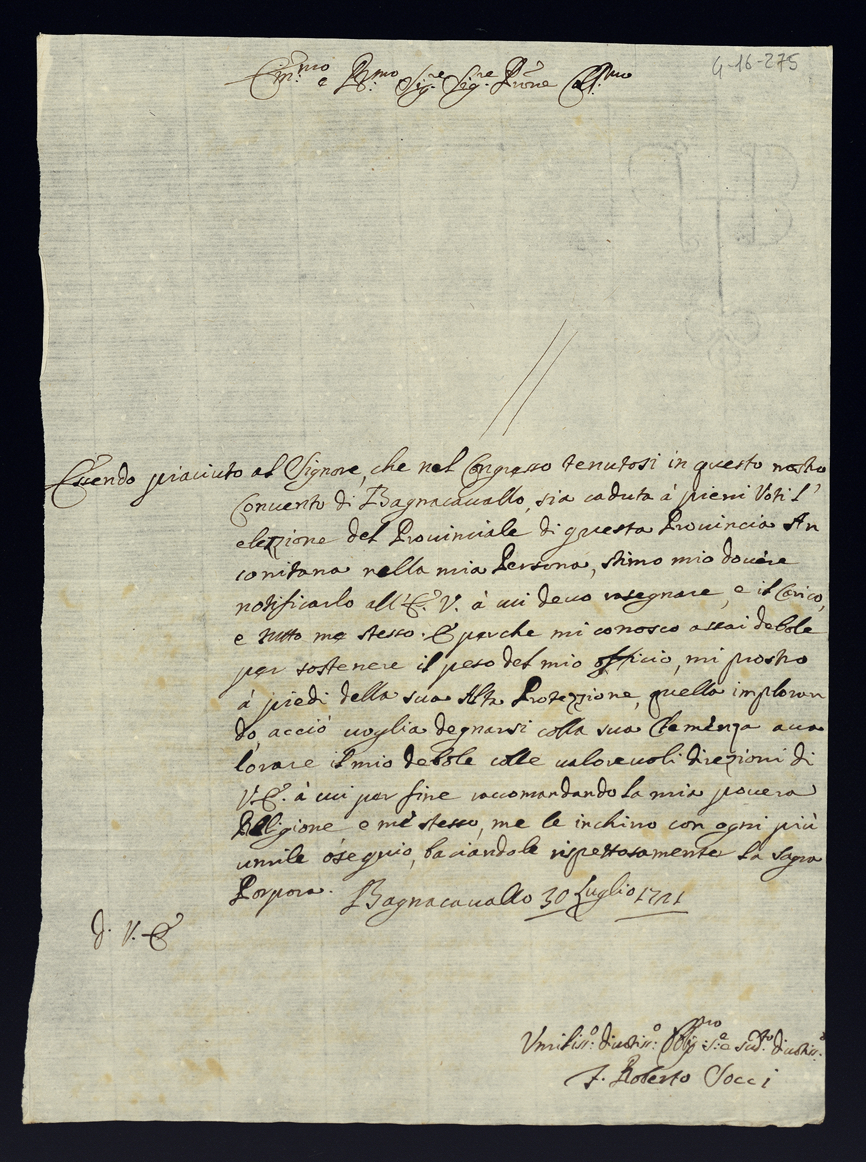 G-16-275
Em:mo e R:mo Sig:re Sig:re P̃rone Col:mo
Essendo piaciuto al Signore, che nel Congresso tenutosi in questo nostro
Convento di Bagnacavallo, sia caduta à pieni Voti l'
elezzione del Provinciale di questa Provincia An
conitana nella mia Persona, stimo mio dovere
notificarlo all'E. V. à cui devo rasegnare, e il Carico,
e tutto me stesso. E perche mi conosco assai debole
per sostenere il peso del mio officio, mi prostro
à piedi della sua Alta Protezzione, quella imploran
do, acciò voglia degnarsi colla sua Clemenza ava
lorare il mio debole colle valorevoli direzioni di
V. E. à cui per fine raccomandando la mia povera
Religione e mè stesso, me le inchino con ogni più
umile ósequio, baciandole rispettosamente la Sagra
Porpora. Bagnacavallo 30 Luglio 1721
d. V. E
Umiliss:o divotiss:o Obli:mo s:e e divotiss:o
F. Roberto Socci